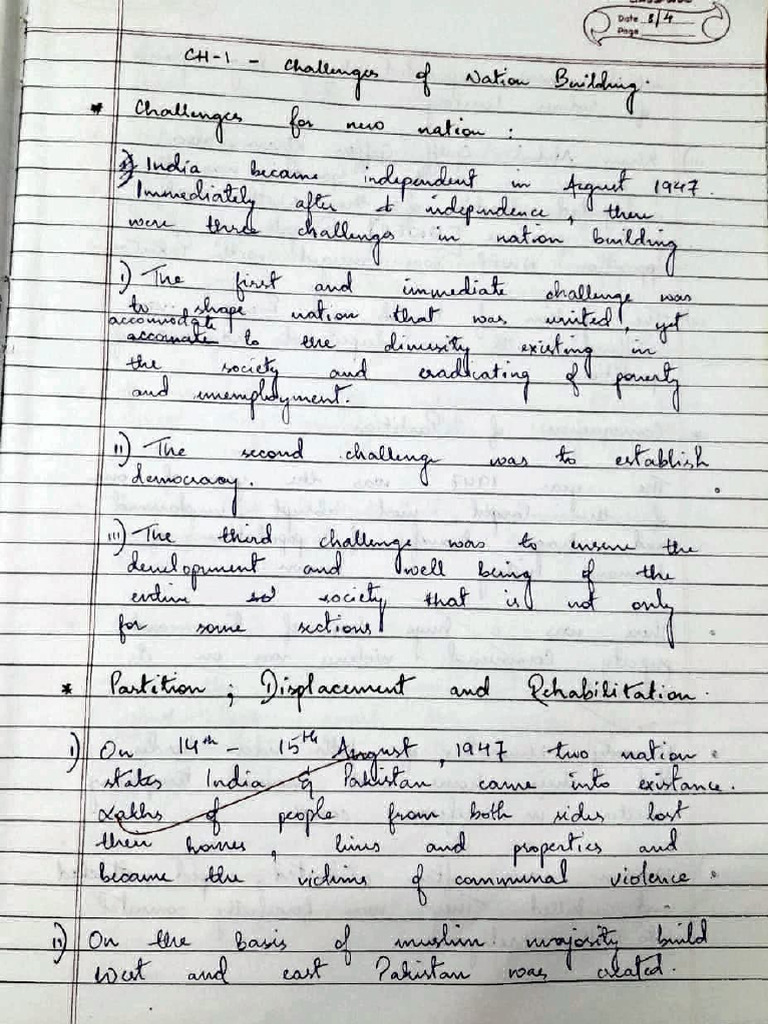 Date 8/4
Page
CH-1 - Challenges of Nation Building.
* Challenges for new nation :
India became independent in August 1947.
Immediately after independence, there
were three challenges in nation building
i) The first and immediate challenge was
to shape nation that was united, yet
accomodate
accomate to the diversity existing in
the society and eradicating of poverty
and unemployment.
ii) The second challenge was to establish
democracy.
iii) The third challenge was to ensure the
development and well being of the
entire so society that is not only
for some sections
* Partition ; Displacement and Rehabilitation.
i) On 14th - 15th August, 1947 two nation
states India & Pakistan came into existance.
Lakhs of people from both sides lost
their homes, lives and properties and
became the victims of communal violence.
ii) On the basis of muslim majority build
west and east Pakistan was created.